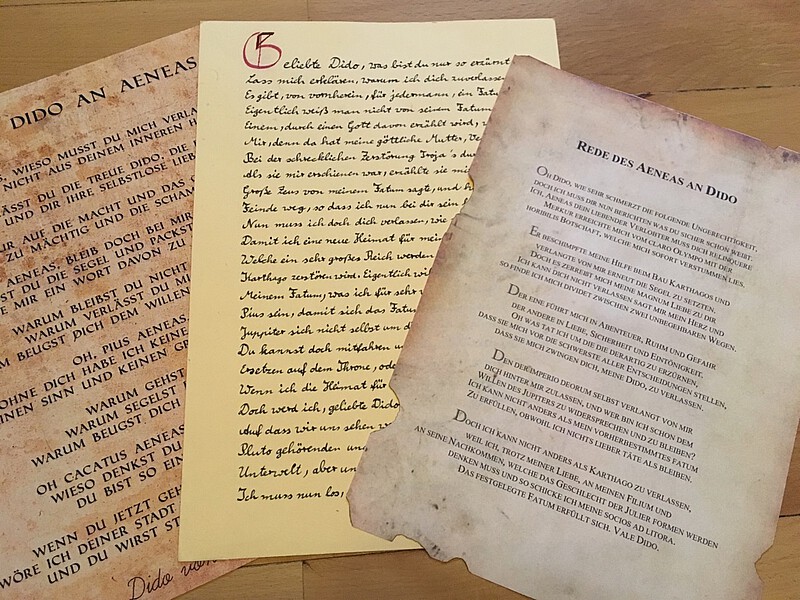 DIDO AN AENEAS
WIESO MUSST DU MICH VERLA
NICHT AUS DEINEM INNEREN H
ÄSST DU DIE TREUE DIDO, DIE
UND DIR IHRE SELBSTLOSE LIEB
UR AUF DIE MACHT UND DAS
ZU MÄCHTIG UND DIE SCHAM
AENEAS, BLEIB DOCH BEI MIR
ST DU DIE SEGEL UND PACKST
E MIR EIN WORT DAVON ZU
WARUM BLEIBST DU NICHT
WARUM VERLÄSST DU M
M BEUGST DICH DEM WILLEN
OH, PIUS AENEAS
OHNE DICH HABE ICH KEINE
INEN SINN UND KEINEN GR
WARUM GEHST
WARUM SEGELST
WARUM BEUGST DICH
OH CACATUS AENEAS
WIESO DENKST DU
DU BIST SO EIN
WENN DU JETZT GEH
WÖRE ICH DEINER STADT
UND DU WIRST ST
Dido von
Geliebte Dido, was bist du nur so erzürnt
Lass mich erklären, warum ich dich zuverlasse
Es gibt, von vornherein, für jedermann, ein Fatu
Eigentlich weiß man nicht von seinen Fatum
Einem, durch einen Gott davon erzählt wird,
Mir, denn da hat meine göttliche Mutter, Ve
Bei der schrecklichen Zerstörung Troja's du
Als sie mir erschienen war, erzählte sie m
Große Zeus von meinem Fatum sagt, und
Feinde weg, so dass ich nun bei dir sein
Nun muss ich doch dich verlassen, wie
Damit ich eine neue Heimat für mei
Welche ein sehr großes Reich werden
Karthago zerstören wird. Eigentlich wi
Meinem Fatum, was ich für sehr
Pius sein, damit sich das Fatu
Juppiter sich nicht selbst um d
Du kannst doch mitfahren u
Ersetzen auf dem Throne, od
Wenn ich die Heimat für
Doch werd ich, geliebte Dido
Auf dass wir uns sehen w
Pluto gehörenden un
Unterwelt, aber un
Ich muss nun los,
REDE DES AENEAS AN DIDO
OH DIDO, WIE SEHR SCHMERZT DIE FOLGENDE UNGERECHTIGKEIT,
DOCH ICH MUSS DIR NUN BERICHTEN WAS DU SICHER SCHON WEIßT.
ICH, AENEAS DEIN LIEBENDER VERLOBTER MUSS DICH RELINQUERE
MERKUR ERREICHTE MICH VOM CLARO OLYMPO MIT DER
HORIBILIS BOTSCHAFT, WELCHE MICH SOFORT VERSTUMMEN LIES.
ER BESCHIMPFTE MEINE HILFE BEIM BAU KARTHAGOS UND
VERLANGTE VON MIR ERNEUT DIE SEGEL ZU SETZTEN.
DOCH ES ZERREIBT MICH MEINE MAGNUM LIEBE ZU DIR
ICH KANN DICH NICHT VERLASSEN SAGT MIR MEIN HERZ UND
SO FINDE ICH MICH DIVIDET ZWISCHEN ZWEI UNBEGEHBAREN WEGEN.
DER EINE FÜHRT MICH IN ABENTEUER, RUHM UND GEFAHR
DER ANDERE IN LIEBE, SICHERHEIT UND EINTÖNIGKEIT.
OH WAS TAT ICH UM DIE DIE DERARTIG ZU ERZÜRNEN,
DASS SIE MICH VOR DIE SCHWERSTE ALLER ENTSCHEIDUNGEN STELLEN,
DASS SIE MICH ZWINGEN DICH, MEINE DIDO, ZU VERLASSEN.
DEN DER IMPERIO DEORUM SELBST VERLANGT VON MIR
DICH HINTER MIR ZULASSEN, UND WER BIN ICH SCHON DEM
WILLEN DES JUPITERS ZU WIDERSPRECHEN UND ZU BLEIBEN?
ICH KANN NICHT ANDERS ALS MEIN VORHERBESTIMMTES FATUM
ZU ERFÜLLEN, OBWOHL ICH NICHTS LIEBER TÄTE ALS BLEIBEN.
DOCH ICH KANN NICHT ANDERS ALS KARTHAGO ZU VERLASSEN,
WEIL ICH, TROTZ MEINER LIEBE, AN MEINEN FILIUM UND
AN SEINE NACHKOMMEN, WELCHE DAS GESCHLECHT DER JULIER FORMEN WERDEN
DENKEN MUSS UND SO SCHICKE ICH MEINE SOCIOS AD LITORA.
DAS FESTGELEGTE FATUM ERFÜLLT SICH. VALE DIDO.